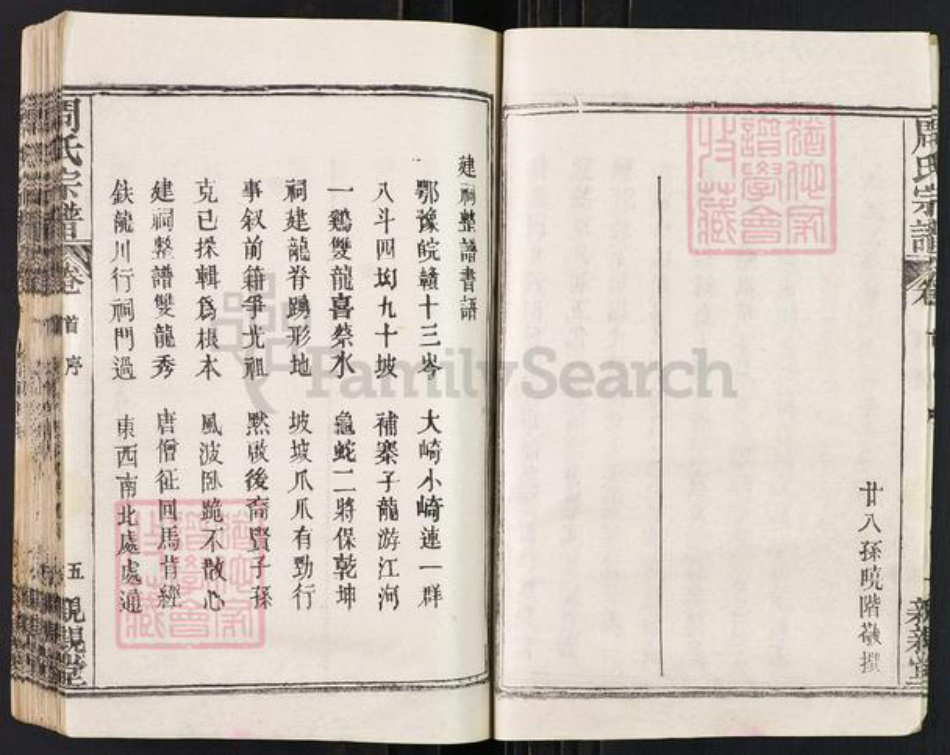 周氏宗譜
卷 首
廿八孫曉階 撰
親親堂
建祠整譜書語
鄂豫皖贛十三岑 大崎小崎連一群
八斗四㘭九十坡 補寨子龍游江河
一鷄雙龍喜祭水 龜蛇二將保乾坤
祠建龍脊踴形地 坡坡爪爪有勁行
事叙前籍爭光祖 黙啟後裔賢子孫
克已採輯爲根本 風波卧跪不散心
建祠整譜雙龍秀 唐僧征回馬昔經
鉄龍川行祠門過 東西南北處處通
周氏宗譜
卷首 序
五
親親堂
猶他家譜學會收藏
猶他家譜學會收藏
FamilySearch